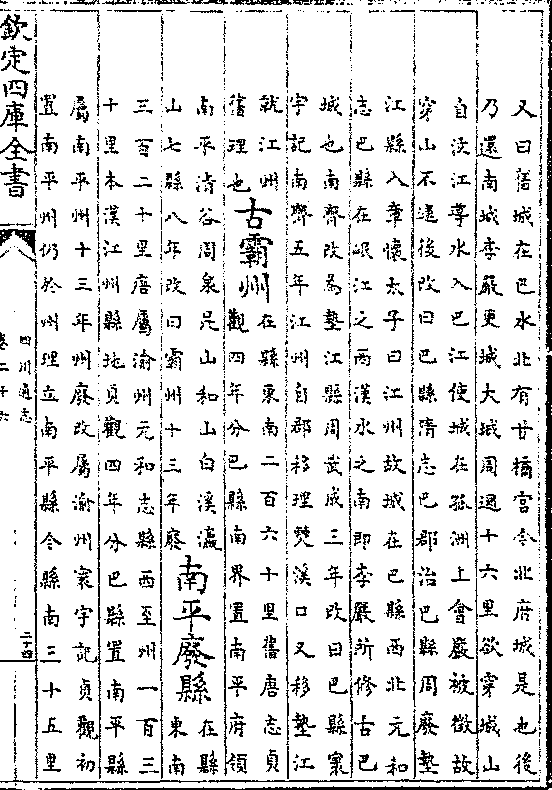 又曰舊城在巴水北有甘橘宫今北府城是也後
乃還南城李嚴更城大城周迴十六里欲穿城山
自汶江導水入巴江使城在孤洲上會嚴被徵故
穿山不逮後改曰巴縣隋志巴郡治巴縣周廢墊
江縣入章懷太子曰江州故城在巴縣西北元和
志巴縣在岷江之西漢水之南即李嚴所修古巴
城也南齊改為墊江縣周武成三年改曰巴縣寰
宇記南齊五年江州自郡移理僰溪口又移墊江
就江州
舊理也古霸州在縣東南二百六十里舊唐志貞
觀四年分巴縣南界置南平府領
南平清谷周泉昆山和山白溪瀛
山七縣八年改曰霸州十三年廢南平廢縣在縣
東南
三百二十里唐屬渝州元和志縣西至州一百三
十里本漢江州縣地貞觀四年分巴縣置南平縣
屬南平州十三年州廢改屬渝州寰宇記貞觀初
置南平州仍於州理立南平縣今縣南三十五里
欽定四庫全書
四川通志
卷二十六
二十四